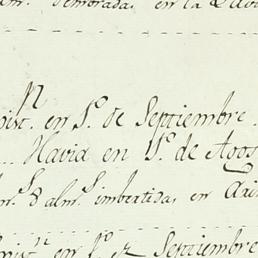 sembrada, en la
en 1º. de Septiembre
Havia en 1º. de Agos
8 alm.s imbertidas, en
en 1º. Septiembre